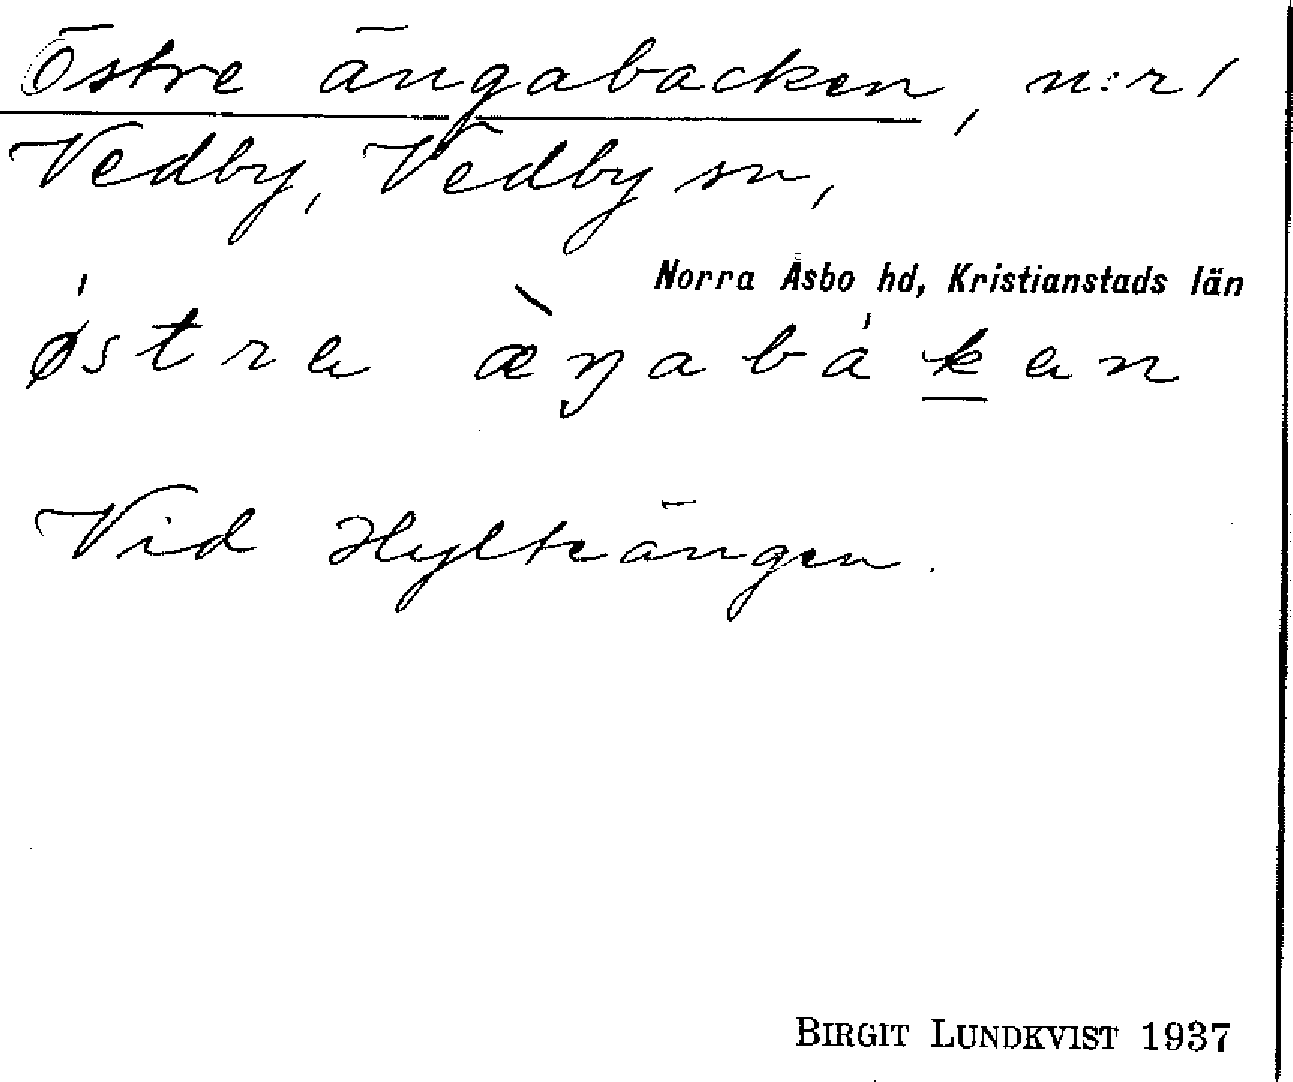 Östre ängabacken, n:r 1
Vedby, Vedby sn,
Norra Åsbo hd, Kristianstads län
ǿstrɐ æ̀ŋabák̲ɐn
Vid Hylteängen.
BIRGIT LUNDKVIST 1937